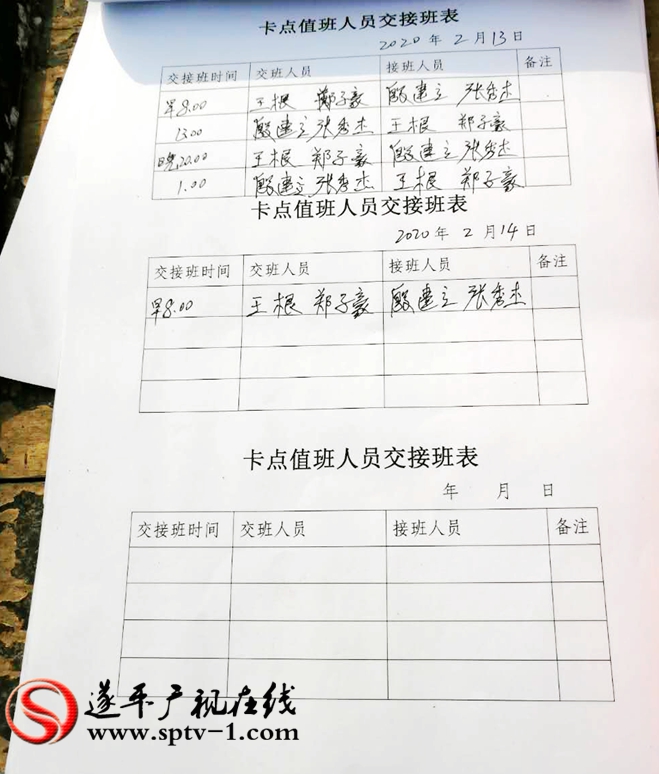 卡点值班人员交接班表
2020 年 2 月 13 日
交接班时间 交班人员 接班人员 备注
早8.00 王根 郑子豪 殷建立 张秀杰
13.00 殷建立 张秀杰 王根 郑子豪
晚20.00 王根 郑子豪 殷建立 张秀杰
1.00 殷建立 张秀杰 王根 郑子豪
卡点值班人员交接班表
2020 年 2 月 14 日
交接班时间 交班人员 接班人员 备注
早8.00 王根 郑子豪 殷建立 张秀杰
卡点值班人员交接班表
年 月 日
交接班时间 交班人员 接班人员 备注
遂平广视在线
www.sptv-1.com